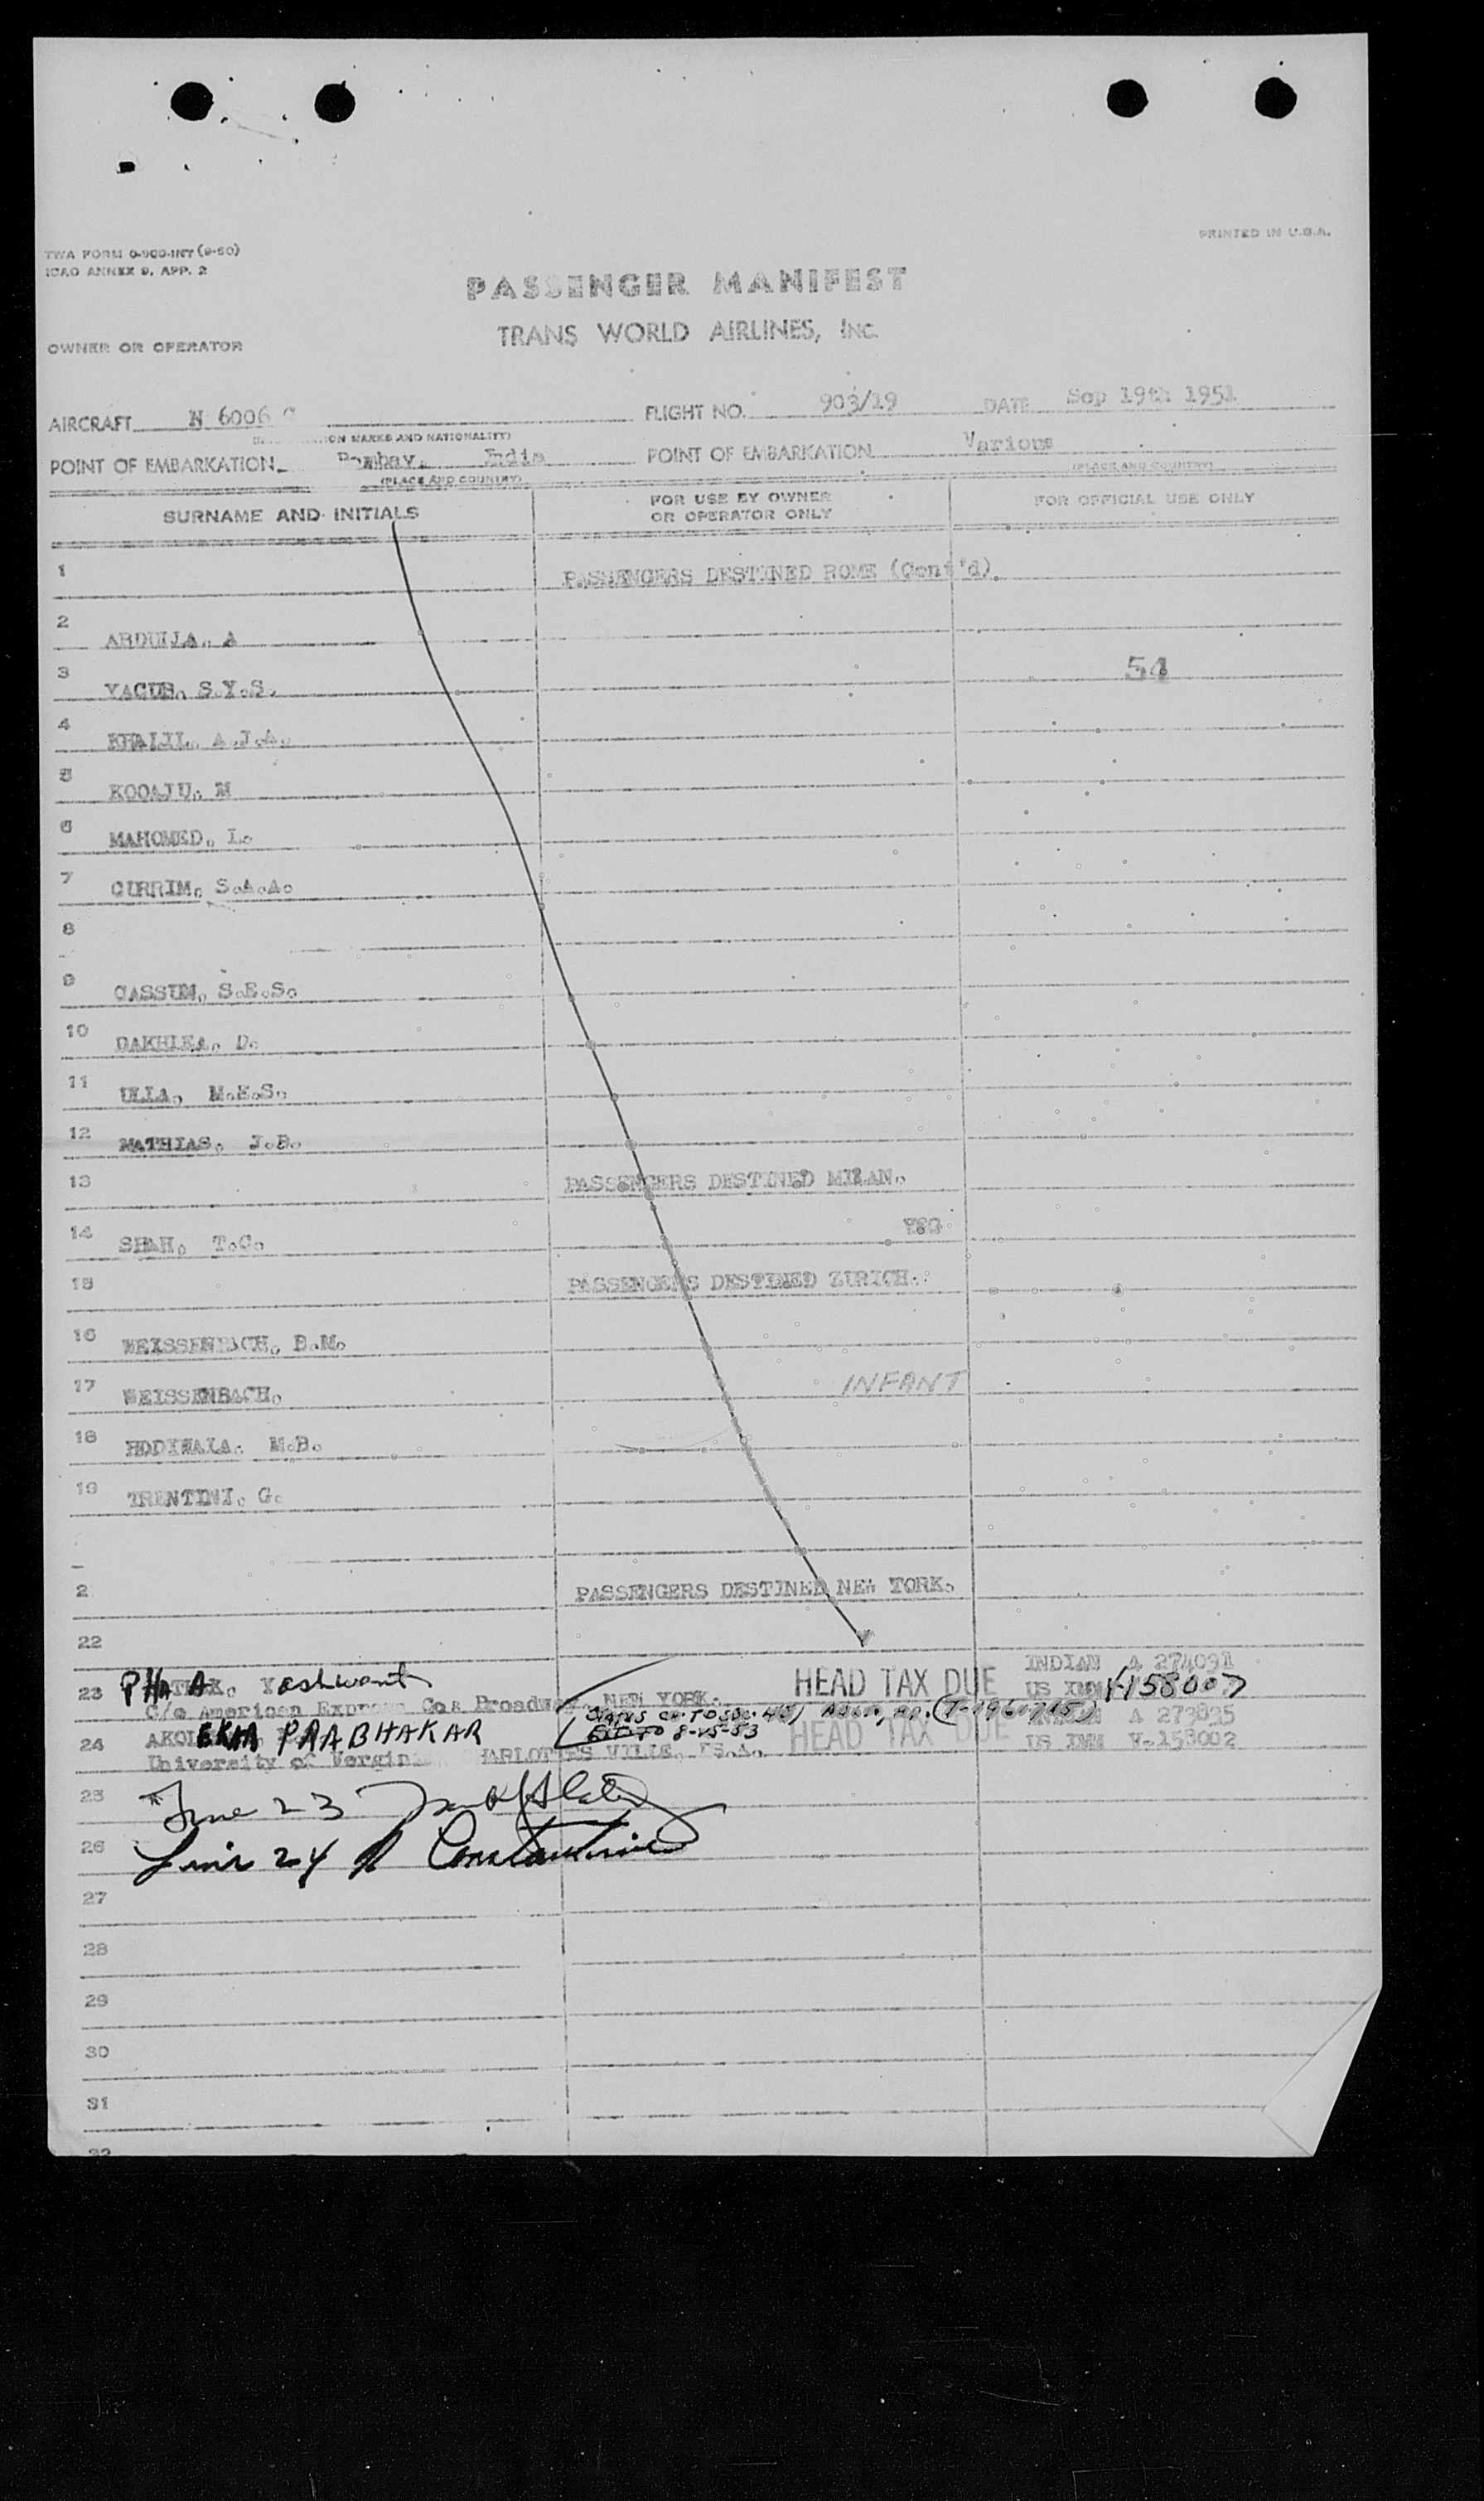 TWA FORM 0-900-INT (9-50)
ICAO ANNEX 9, APP. 2
PRINTED IN U.S.A.
PASSENGER MANIFEST
TRANS WORLD AIRLINES, INC.
OWNER OR OPERATOR
AIRCRAFT N 6006 C FLIGHT NO. 903/19 DATE Sep 19th 1951
ON MARKS AND NATIONALITY)
POINT OF EMBARKATION Bombay, India POINT OF EMBARKATION Various
(PLACE AND COUNTRY) (PLACE AND COUNTRY)
SURNAME AND INITIALS FOR USE BY OWNER OR OPERATOR ONLY FOR OFFICIAL USE ONLY
1 PASSENGERS DESTINED ROME (Cont'd).
2 ABDULLA, A
3 YACUB, S.Y.S. 54
4 KHALIL, A.J.A.
5 KOOAJU, M
6 MAHOMED, I.
7 CURRIM, S.A.A.
8
9 CASSUM, S.E.S.
10 DAKHLEA, D.
11 ULLA, M.E.S.
12 MATHIAS, J.B.
13 PASSENGERS DESTINED MILAN.
14 SHAH, T.C.
15 PASSENGERS DESTINED ZURICH.
16 WEISSENBACH, B.M.
17 WEISSENBACH, INFANT
18 HODIWALA, M.B.
19 TRENTINI, G.
2 PASSENGERS DESTINED NEW YORK.
22
INDIAN A 274091
23 PHATAK, Yashwant HEAD TAX DUE US IMM V-158007
C/o American Express Co& Broadway, NEW YORK.
STATUS CH. TO SEC. 4(E)
A 273835
24 PRABHAKAR EXT TO 8-25-53 HEAD TAX DUE US IMM V-158002
University of Virgin CHARLOTTES VILLE, U.S.A.
25 Line 23
26 Line 24 Constantine
27
28
29
30
31
32